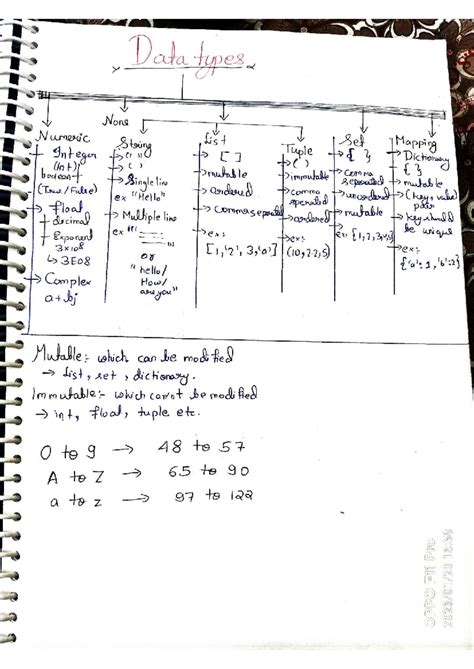 Data types
None
Numeric
→ Integer
(Int)
boolean
(True/False)
→ float
→ decimal
→ Exponent
3×10⁸
↳ 3E08
→ Complex
a+bj
String
→ (' ')
→ ( " " )
→ Single line
ex "Hello"
→ Multiple line
or
"hello/
How/
are you"
List
→ [ ]
→ mutable
→ ordered
→ Comma seperated
→ ex:
[1, '2', 3, 'a']
Tuple
→ ( )
→ immutable
→ comma
seperated
→ ordered
→ ex:
(10, 22, 5)
Set
→ { }
→ comma
seperated
→ unordered
→ mutable
Mapping
Dictionary
→ { }
→ mutable
→ (key, value)
pair
→ key should
be unique
→ ex:
{'a': 1, 'b': 2}
Mutable:- which can be modified
→ list, set, dictionary.
Immutable:- which can't be modified
→ int, float, tuple etc.
0 to 9 → 48 to 57
A to Z → 65 to 90
a to z → 97 to 122